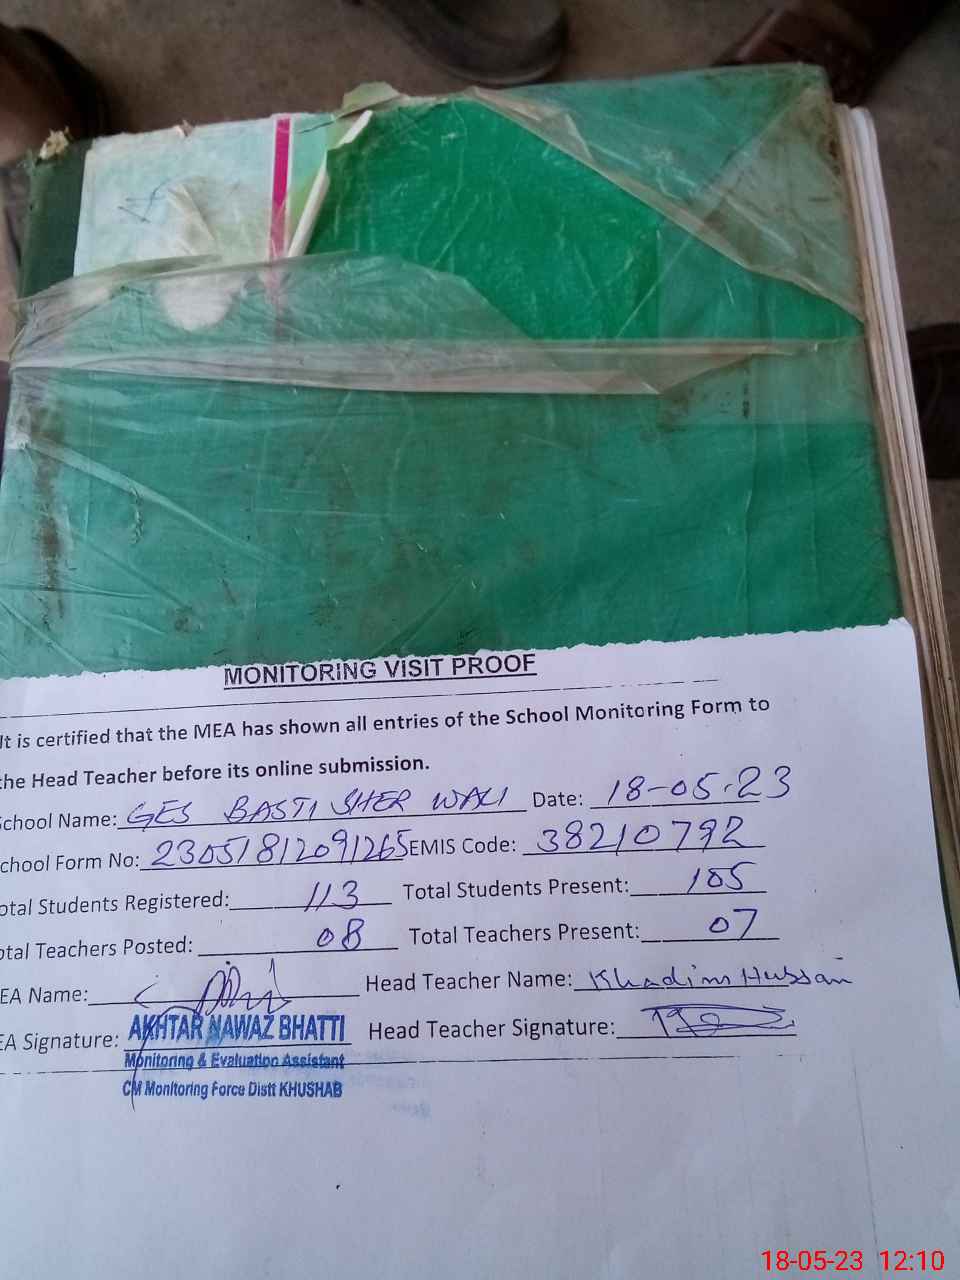 MONITORING VISIT PROOF
It is certified that the MEA has shown all entries of the School Monitoring Form to
the Head Teacher before its online submission.
School Name: GES BASTI SHER WALI Date: 18-05-23
chool Form No: 23051812091265 EMIS Code: 38210792
otal Students Registered: 113 Total Students Present: 105
otal Teachers Posted: 08 Total Teachers Present: 07
EA Name: Head Teacher Name: Khadim Hussain
EA Signature: AKHTAR NAWAZ BHATTI Head Teacher Signature:
Monitoring & Evaluation Assistant
CM Monitoring Force Distt KHUSHAB
18-05-23 12:10